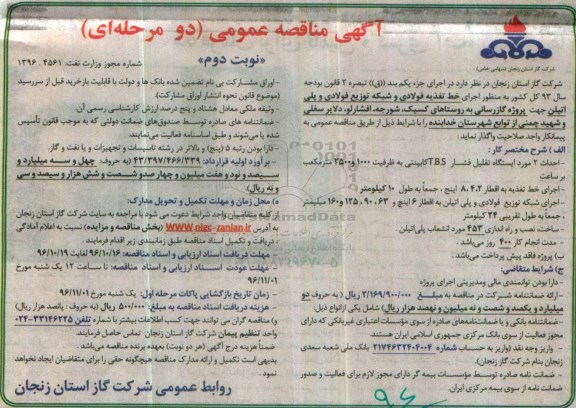 آگهی مناقصه عمومی (دو مرحله‌ای)
«نوبت دوم»
شماره مجوز وزارت نفت: ۴۵۶۱. ۱۳۹۶
شرکت گاز استان زنجان (سهامی خاص)
شرکت گاز استان زنجان در نظر دارد در اجرای جزء یکم بند ((ق)) تبصره ۲ قانون بودجه
سال ۹۳ کل کشور به منظور اجرای خط تغذیه فولادی و شبکه توزیع فولادی و پلی
اتیلن جهت پروژه گازرسانی به روستاهای کسیک، شورجه، افشارلو، دلایر سفلی
و شهید چمنی از توابع شهرستان خدابنده را با شرایط ذیل از طریق مناقصه عمومی به
پیمانکار واجد صلاحیت واگذار نماید.
الف) شرح مختصر کار:
- احداث ۲ مورد ایستگاه تقلیل فشار T.B.S کابینتی به ظرفیت ۱۰۰۰و۲۵۰۰ مترمکعب
بر ساعت
- اجرای خط تغذیه به اقطار ۸،۴،۲ اینچ ، جمعاً به طول ۱۰ کیلومتر
- اجرای شبکه توزیع فولادی و پلی اتیلن به اقطار ۶ اینچ و ۶۳، ۹۰، ۱۲۵ و۱۶۰ میلیمتر
، جمعاً به طول تقریبی ۲۴ کیلومتر
- ساخت، نصب و راه اندازی ۴۵۳ مورد انشعاب پلی‌اتیلن.
- مدت انجام کار ۴۰۰ روز می‌باشد .
ب) پروژه فاقد پیش پرداخت می‌باشد.
ج) شرایط متقاضی:
- دارا بودن توانمندی مالی ومدیریتی اجرای پروژه
- ارائه ضمانتنامه شرکت در مناقصه به مبلغ ۲/۱۶۹/۹۰۰/۰۰۰ ریال ( به حروف دو
میلیارد و یکصد و شصت و نه میلیون و نهصد هزار ریال) شامل یکی ازانواع ذیل:
- ضمانتنامه بانکی و یا ضمانت‌نامه‌های صادره از سوی مؤسسات اعتباری غیربانکی که دارای
مجوز فعالیت از سوی بانک مرکزی جمهوری اسلامی ایران هستند.
- واریز وجه نقد (واریز به حساب شماره ۲۱۷۴۶۳۲۴۰۴۰۰۴ بانک ملی شعبه سعدی
زنجان بنام شرکت گاز زنجان).
- ضمانت نامه صادره توسط مؤسسات بیمه گر دارای مجوز لازم برای فعالیت و صدور
ضمانت نامه از سوی بیمه مرکزی ایران.
- اوراق مشارکت بی نام تضمین شده بانک ها و دولت با قابلیت بازخرید قبل از سررسید
(موضوع قانون نحوه انتشار اوراق مشارکت).
- وثیقه ملکی معادل هشتاد و پنج درصد ارزش کارشناسی رسمی آن.
- ضمانتنامه های صادره توسط صندوق‌های ضمانت دولتی که به موجب قانون تأسیس
شده یا می‌شوند و طبق اساسنامه فعالیت می‌نمایند.
- دارا بودن رتبه ۵ (پنج) و بالاتر در رشته تاسیسات و تجهیزات و یا نفت و گاز.
- برآورد اولیه قرارداد: ۴۳/۳۹۷/۴۶۶/۳۳۹ (به حروف: چهل و سه میلیارد و
سیصد و نود و هفت میلیون و چهار صدو شصت و شش هزار و سیصد و سی
و نه ریال)
ه) محل زمان و مهلت تکمیل و تحویل مدارک:
از کلیه متقاضیان واجد شرایط دعوت می شود با مراجعه به سایت شرکت گاز استان زنجان
به آدرس www.nigc-zanjan.ir (بخش مناقصه و مزایده) نسبت به اعلام آمادگی
، دریافت و تکمیل اسناد مناقصه طبق زمانبندی زیر اقدام فرمایند.
- مهلت دریافت اسناد ارزیابی و اسناد مناقصه: ۹۶/۱۰/۱۶ لغایت ۹۶/۱۰/۱۹
- مهلت عودت اسناد ارزیابی و اسناد مناقصه: تا ساعت ۱۲ یک شنبه مورخ
۹۶/۱۱/۰۱
- زمان تاریخ بازگشایی پاکات مرحله اول: یک شنبه مورخ ۹۶/۱۱/۰۱
- هزینه دریافت اسناد مناقصه به مبلغ: ۵۰۰/۰۰۰ ریال (به حروف : پانصد هزار ریال)
و) مناقصه گران می توانند جهت کسب اطلاعات بیشتر با شماره تلفن ۳۳۱۴۶۲۲۵-۰۲۴
واحد تنظیم پیمان شرکت گاز استان زنجان تماس حاصل فرمایند.
ضمناً هزینه درج آگهی (هر دو نوبت) بعهده برنده مناقصه می‌باشد.
بدیهی است تکمیل و ارائه مدارک مناقصه هیچگونه حقی را برای متقاضیان ایجاد نخواهد
نمود.
روابط عمومی شرکت گاز استان زنجان